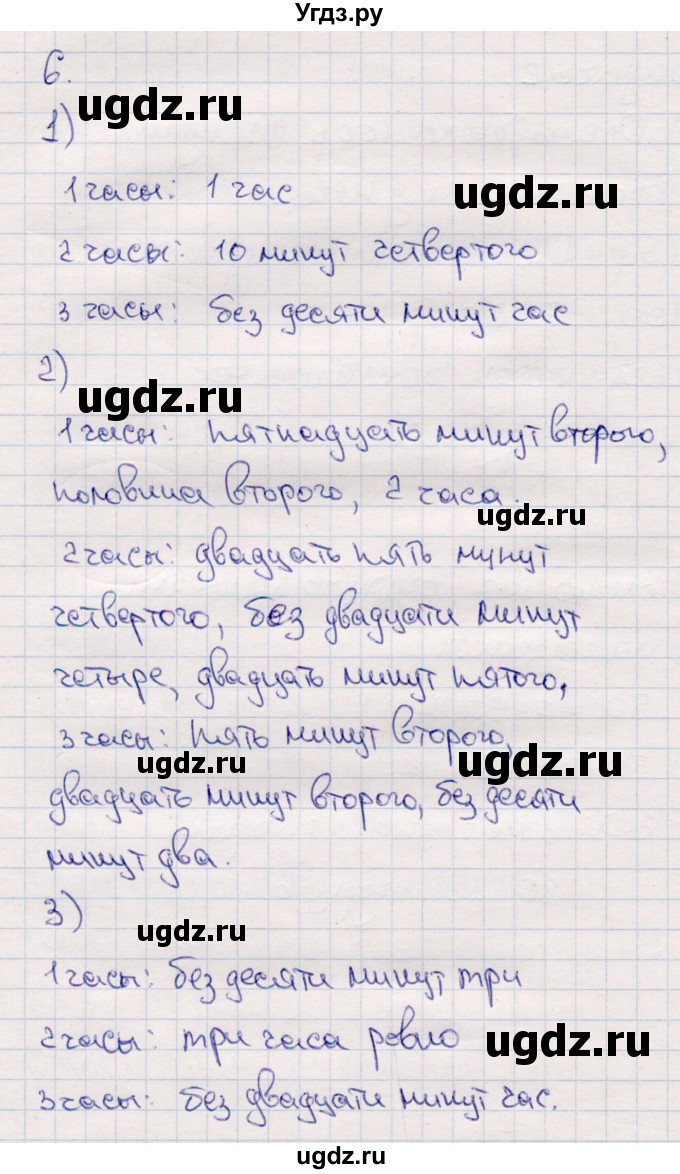 Угдз.ру
6.
ugdz.ru
1)
1 часы: 1 час
ugdz.ru
2 часы: 10 минут четвертого
3 часы: без десяти минут час
2)
ugdz.ru
1 часы: пятнадцать минут второго,
половина второго, 2 часа.
ugdz.ru
2 часы: двадцать пять минут
четвертого, без двадцати минут
четыре, двадцать минут пятого,
3 часы: пять минут второго,
ugdz.ru ugdz.ru
двадцать минут второго, без десяти
минут два.
3)
ugdz.ru
1 часы: без десяти минут три
2 часы: три часа ровно
ugdz.ru
3 часы: без двадцати минут час.
ugdz.ru